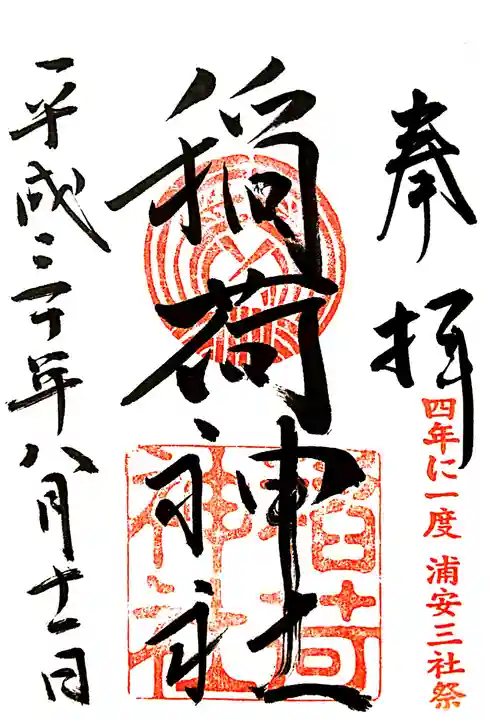 奉拝
四年に一度 浦安三社祭
稲荷神社
稲荷神社
平成三十年八月十一日